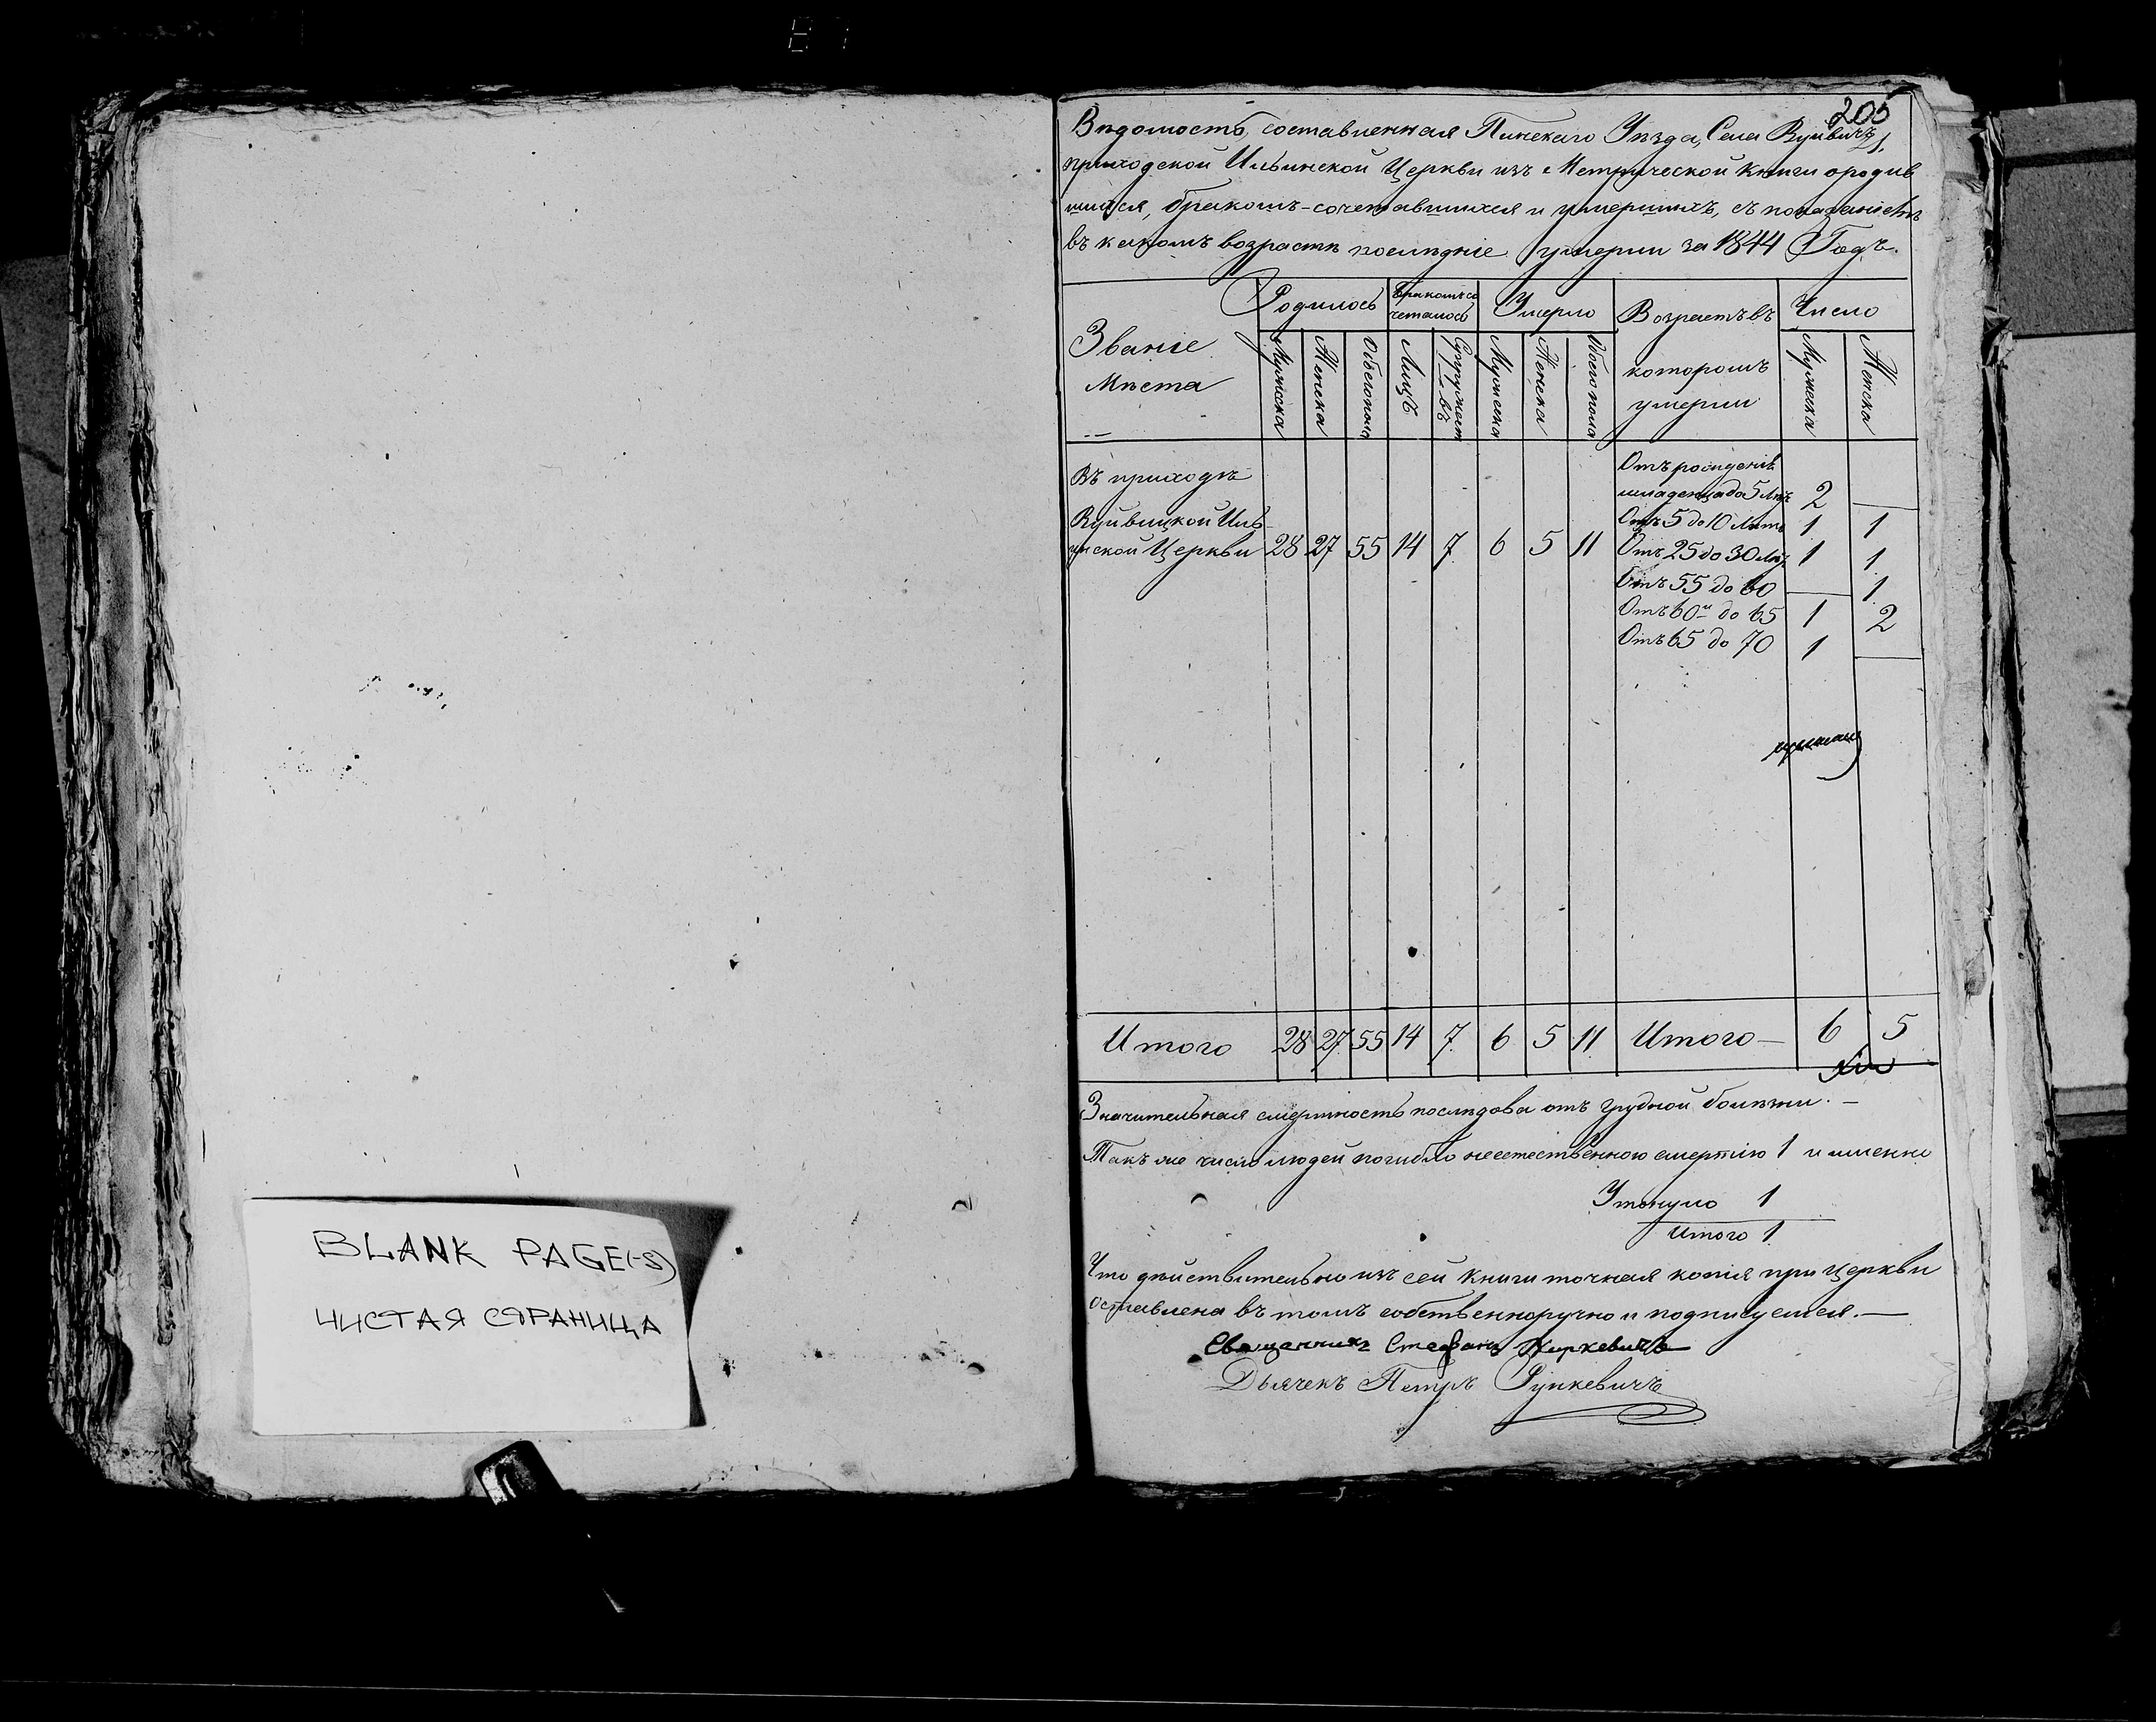 BLANK PAGE(-S)
ЧИСТАЯ СТРАНИЦА
205
Вѣдомость, составленная Пинскаго Уѣзда, Села Куйвичъ,
приходской Ильинской Церкви изъ Метрической книги ородив
шихся, бракомъ-сочетавшихся и умершихъ, съ показаніемъ
въ какомъ возрастѣ послѣдніе умерли за 1844 Годъ.
Званіе Мѣста
Родилось
Бракомъ со четалось
Умерло
Возрастъ въ которомъ умерли
Число
Мужеска Женска Обоего пола Лицъ Супружествъ Мужеска Женска Обоего пола Мужеска Женска
Въ приходѣ
Куйвицкой Иль
инской Церкви 28 27 55 14 7 6 5 11
Отъ рожденія
младенца до 5 Лѣтъ 2 —
Отъ 5 до 10 Лѣтъ 1 1
Отъ 25 до 30 Лѣтъ 1 1
Отъ 55 до 60 — 1
Отъ 60и до 65 1 2
Отъ 65 до 70 1 —
Итого 28 27 55 14 7 6 5 11 Итого — 6 5
Значительная смертность послѣдова отъ грудной болѣзни. —
Такъ же число людей погибло неестественною смертію 1 и именно
Утонуло 1
Итого 1
Что дѣйствительно изъ сей книги точная копія при Церкви
оставлена въ томъ собственноручно и подписуемся. —
Священникъ Стефанъ
Дьячекъ Петръ Рункевичъ